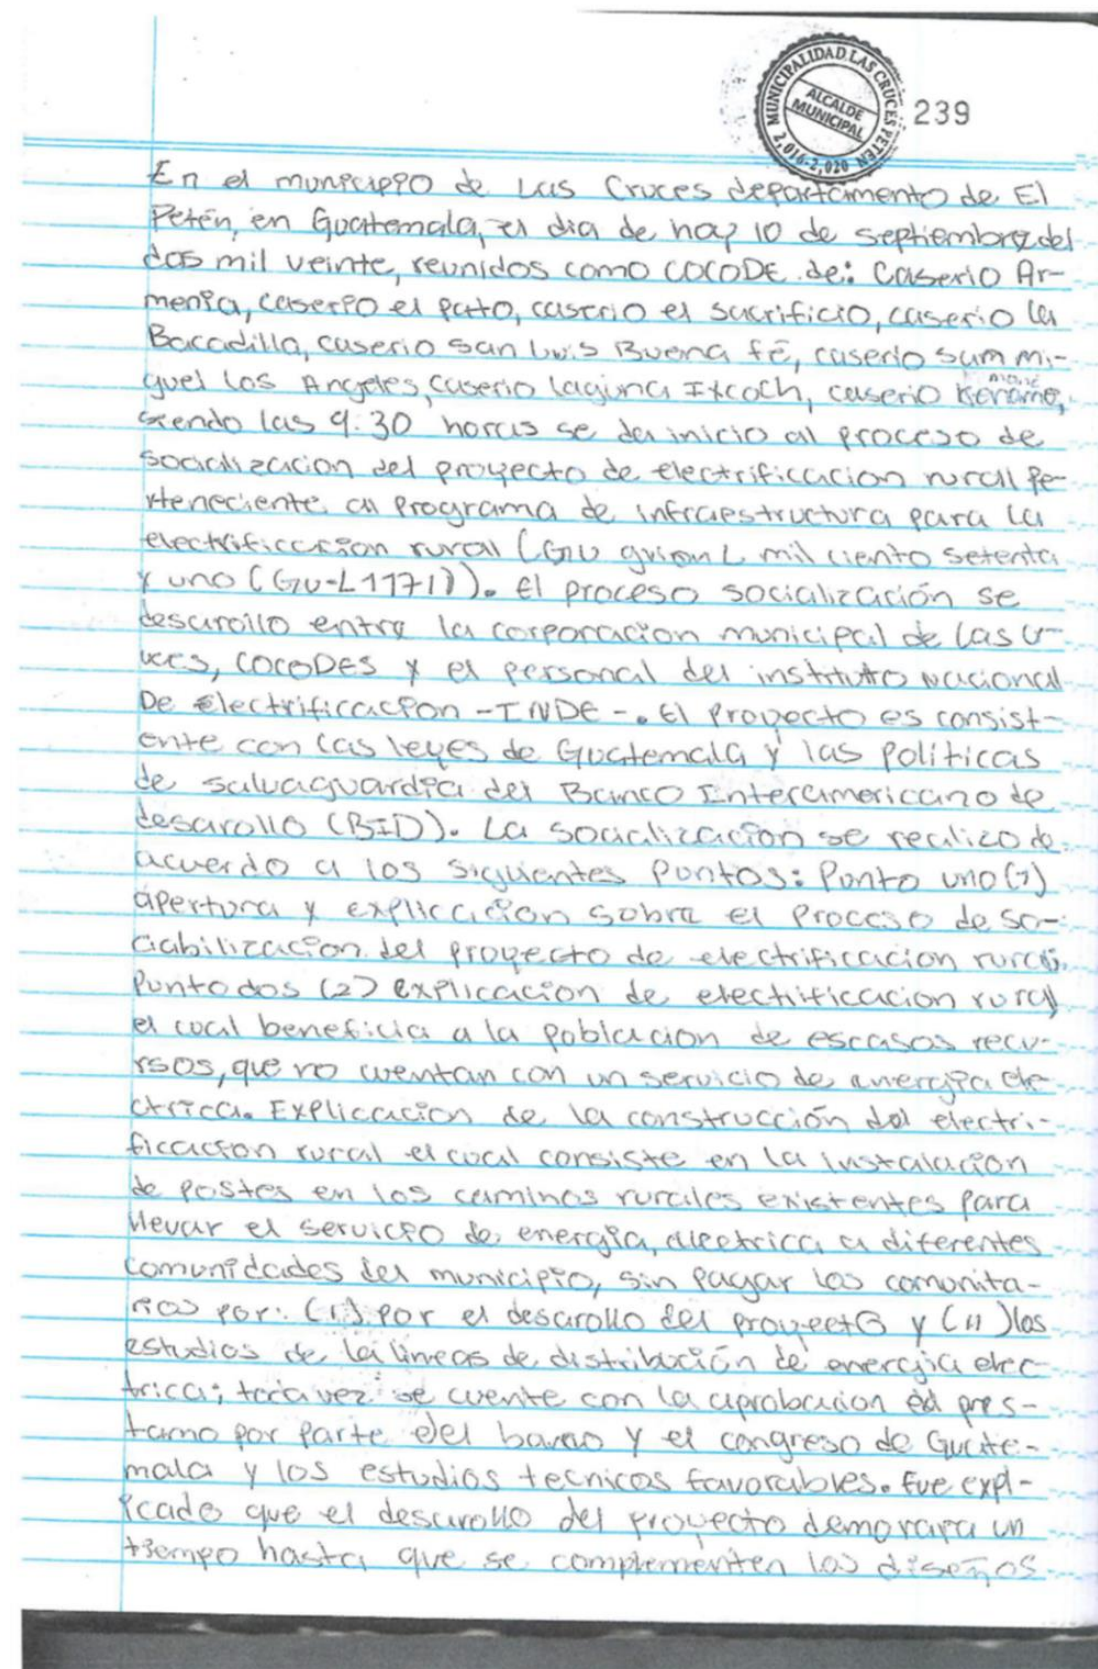 MUNICIPALIDAD LAS CRUCES PETEN
ALCALDE
MUNICIPAL
2,016-2,020
239
En el municipio de Las Cruces departamento de El
Petén, en Guatemala, el dia de hoy 10 de septiembre del
dos mil veinte, reunidos como COCODE de: Caserio Ar-
menia, caserio el pato, caserio el sacrificio, caserio la
Bacadilla, caserio san Luis Buena fé, caserio sam mi-
guel los Angeles, caserio laguna Ixcoch, caserio
siendo las 9:30 horas se da inicio al proceso de
socialización del proyecto de electrificacion rural pe-
rteneciente al programa de infraestructura para la
electrificacion rural (GU guion L mil ciento setenta
y uno (GU-L1171)). El proceso socialización se
desarollo entre la corporacion municipal de las cr-
uces, COCODES y el personal del instituto nacional
De Electrificacion -INDE-. El proyecto es consist-
ente con las leyes de Guatemala y las políticas
de salvaguardia del Banco Interamericano de
desarollo (BID). La socialización se realizo de
acuerdo a los siguientes puntos: Punto uno (1)
apertura y explicación sobre el proceso de so-
ciabilización del proyecto de electrificacion rural.
Punto dos (2) explicación de electificacion rural
el cual beneficia a la poblacion de escasos recu-
rsos, que no cuentan con un servicio de energia ele
ctrica. Explicacion de la construcción del electri-
ficacion rural el cual consiste en la instalación
de postes en los caminos rurales existentes para
llevar el servicio de energia, electrica a diferentes
comunidades del municipio, sin pagar los comunita-
rios por: (1) por el desarollo del proyecto y (11) los
estudios de la lineas de distribución de energia elec
trica; toda vez se cuente con la aprobacion del pres-
tamo por parte del banco y el congreso de Guate-
mala y los estudios tecnicos favorables. Fue expl-
icado que el desarollo del proyecto demorara un
tiempo hasta que se complementen los diseños